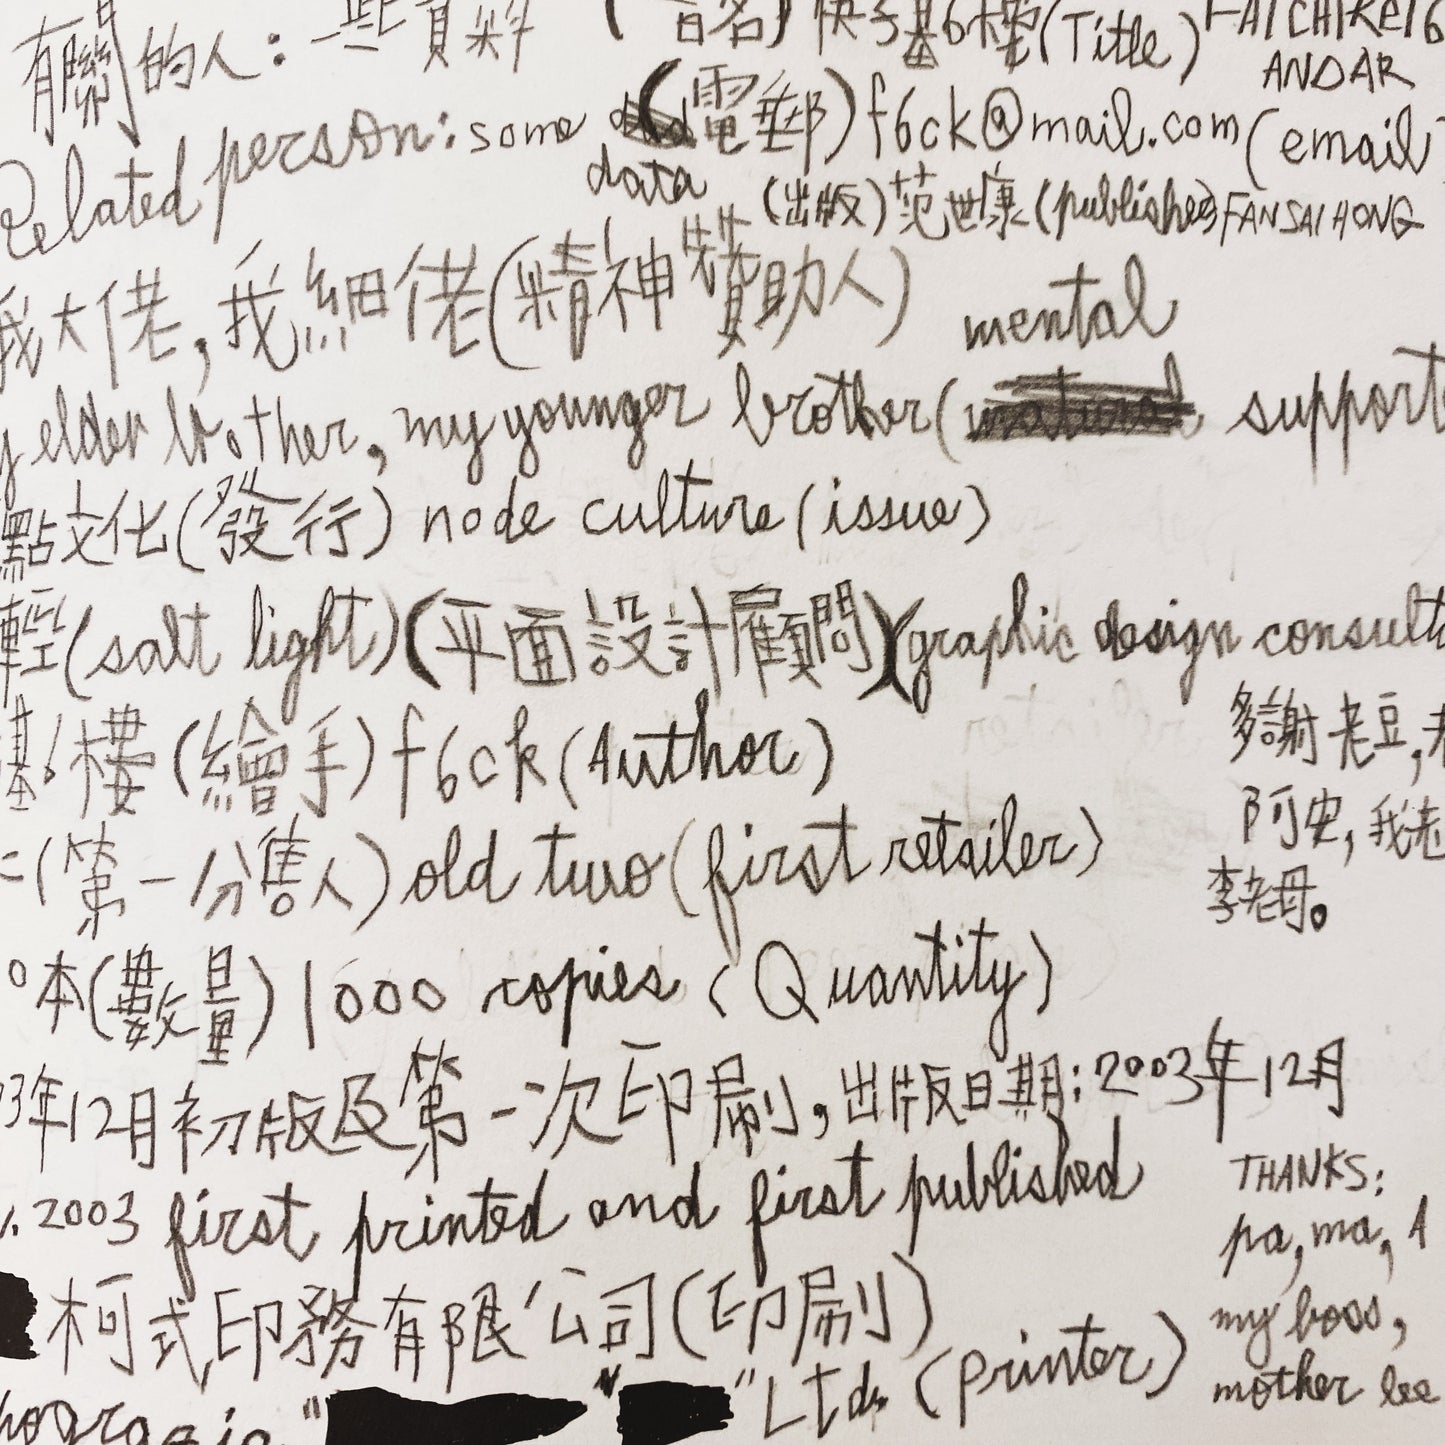 有關的人：一些資料（書名）快予基6樓(Title) FAICHIKEI6
ANDAR
Related person: some data (電郵) f6ck@mail.com (email
(出版) 范世康 (publisher) FANSAIHONG
我大佬，我細佬(精神贊助人)
mental
elder brother, my younger brother ( support
點文化(發行) node culture (issue)
輕(salt light)(平面設計顧問)(graphic design consult
基6樓(繪手) f6ck (Author)
多謝老豆，
二(第一分售人) old two (first retailer)
阿安，我老
李老母。
0本(數量) 1000 copies (Quantity)
03年12月初版及第一次印刷，出版日期：2003年12月
2003 first printed and first published
THANKS:
pa, ma, A
柯式印務有限公司(印刷)
my boss,
" " "Ltd. (printer)
mother lee